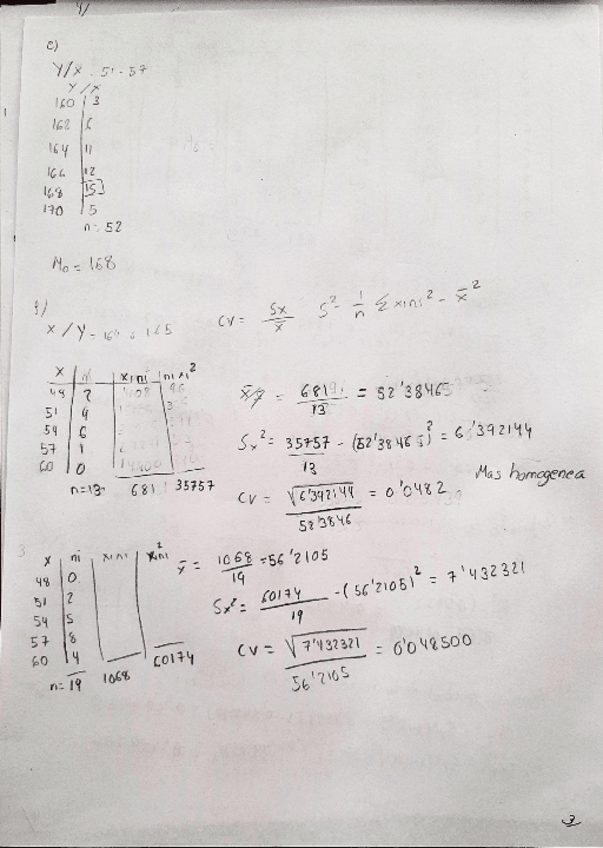 e)
Y/X = 51 - 57
Y/X
160 3
162 6
164 11
166 12
168 15
170 5
n = 52
Mo = 168
X/Y =
CV = Sx/x̄ S² = 1/n Σ xini² - x̄²
X ni xini nixi²
48 2
51 4
54 6
57 1
60 0
n=13 681 35757
= 681/13 = 52'38465
Sx² = 35757/13 - (52'38465)² = 6'392144
CV = √6'392144/52'3846 = 0'0482
Mas homogenea
x ni xini xi²ni
48 0
51 2
54 5
57 8
60 4
n = 19 1068 60174
x̄ = 1068/19 = 56'2105
Sx² = 60174/19 - (56'2105)² = 7'432321
CV = √7'432321/56'2105 = 0'048500
3